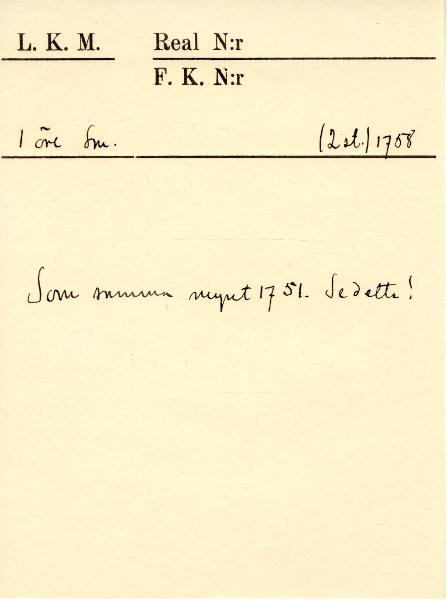 L. K. M. Real N:r
F. K. N:r
1 öre Sm. (2 st.) 1758
Som summa mynt 1751. Se detta!